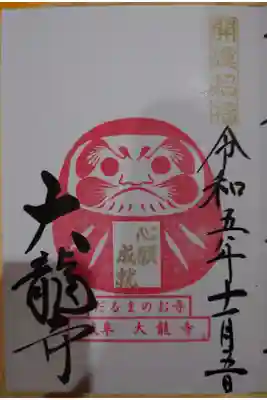 開運招福
令和五年十一月五日
心願
成就
だるまのお寺
岐阜 大龍寺
大龍寺